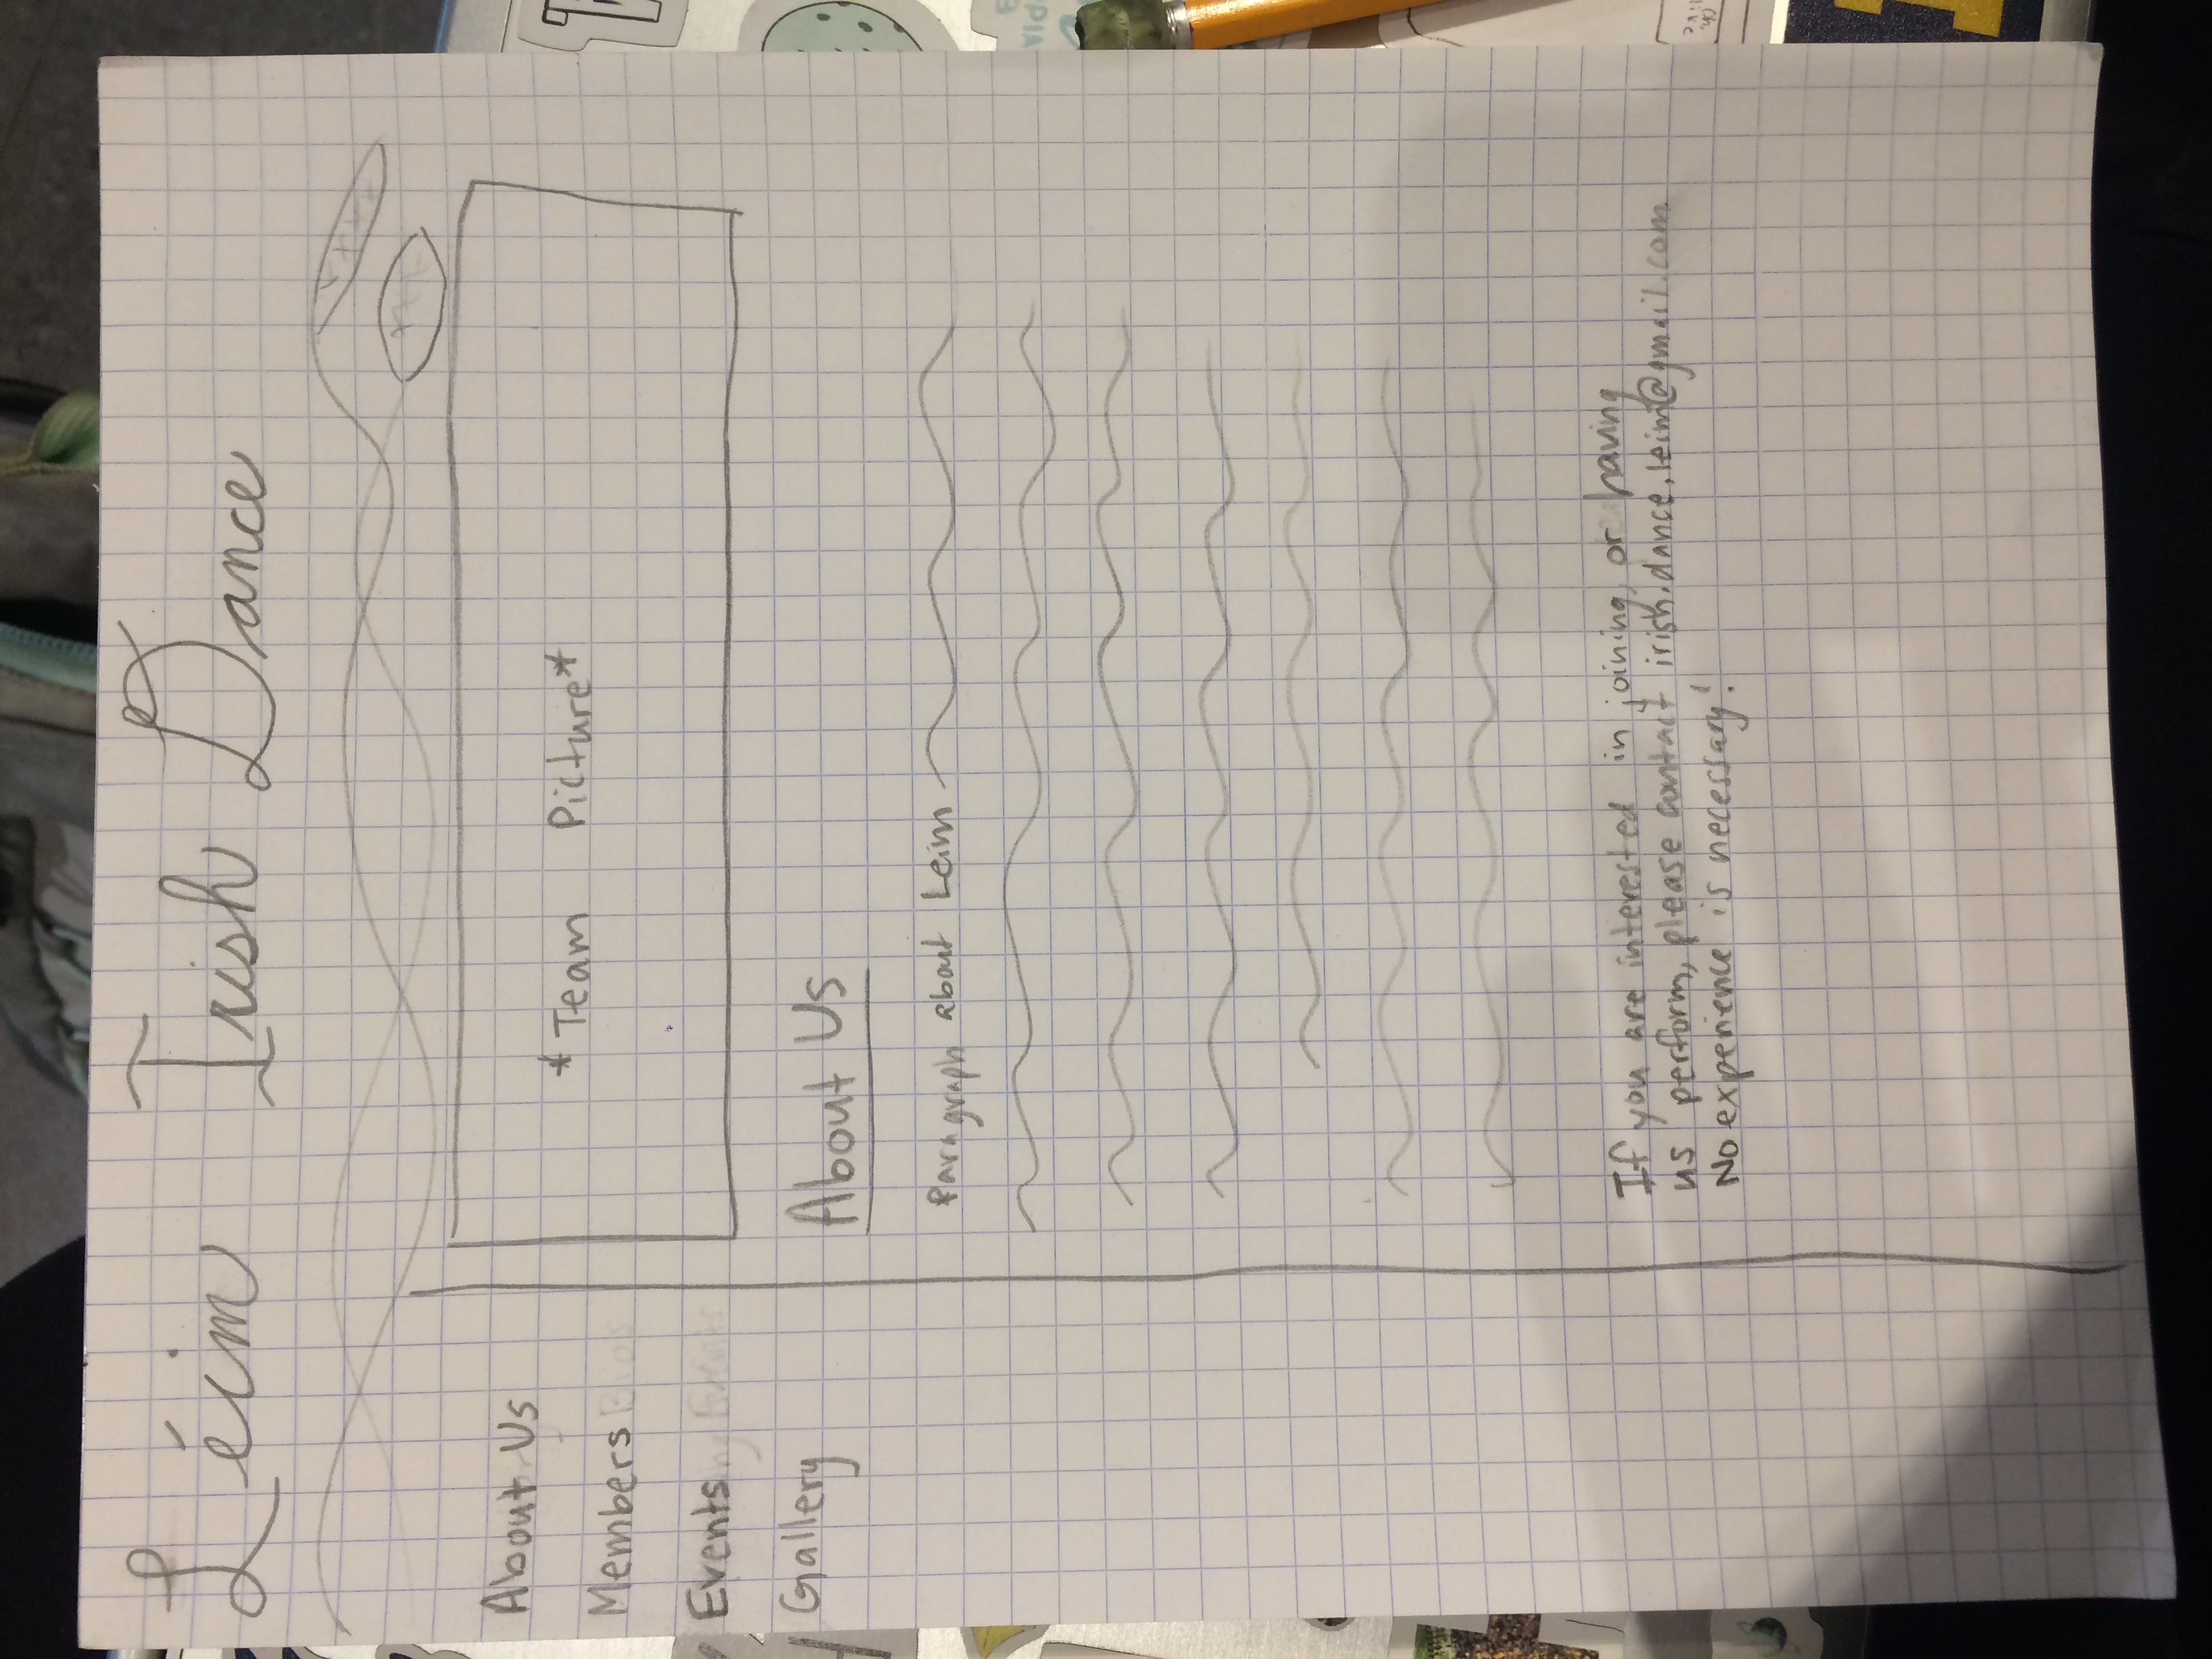 Léim Irish Dance
About Us
Members
Events
Gallery
*Team Picture*
About Us
Paragraph about Leim
If you are interested in joining, or having
us perform, please contact irish.dance.leim@gmail.com
No experience is necessary!